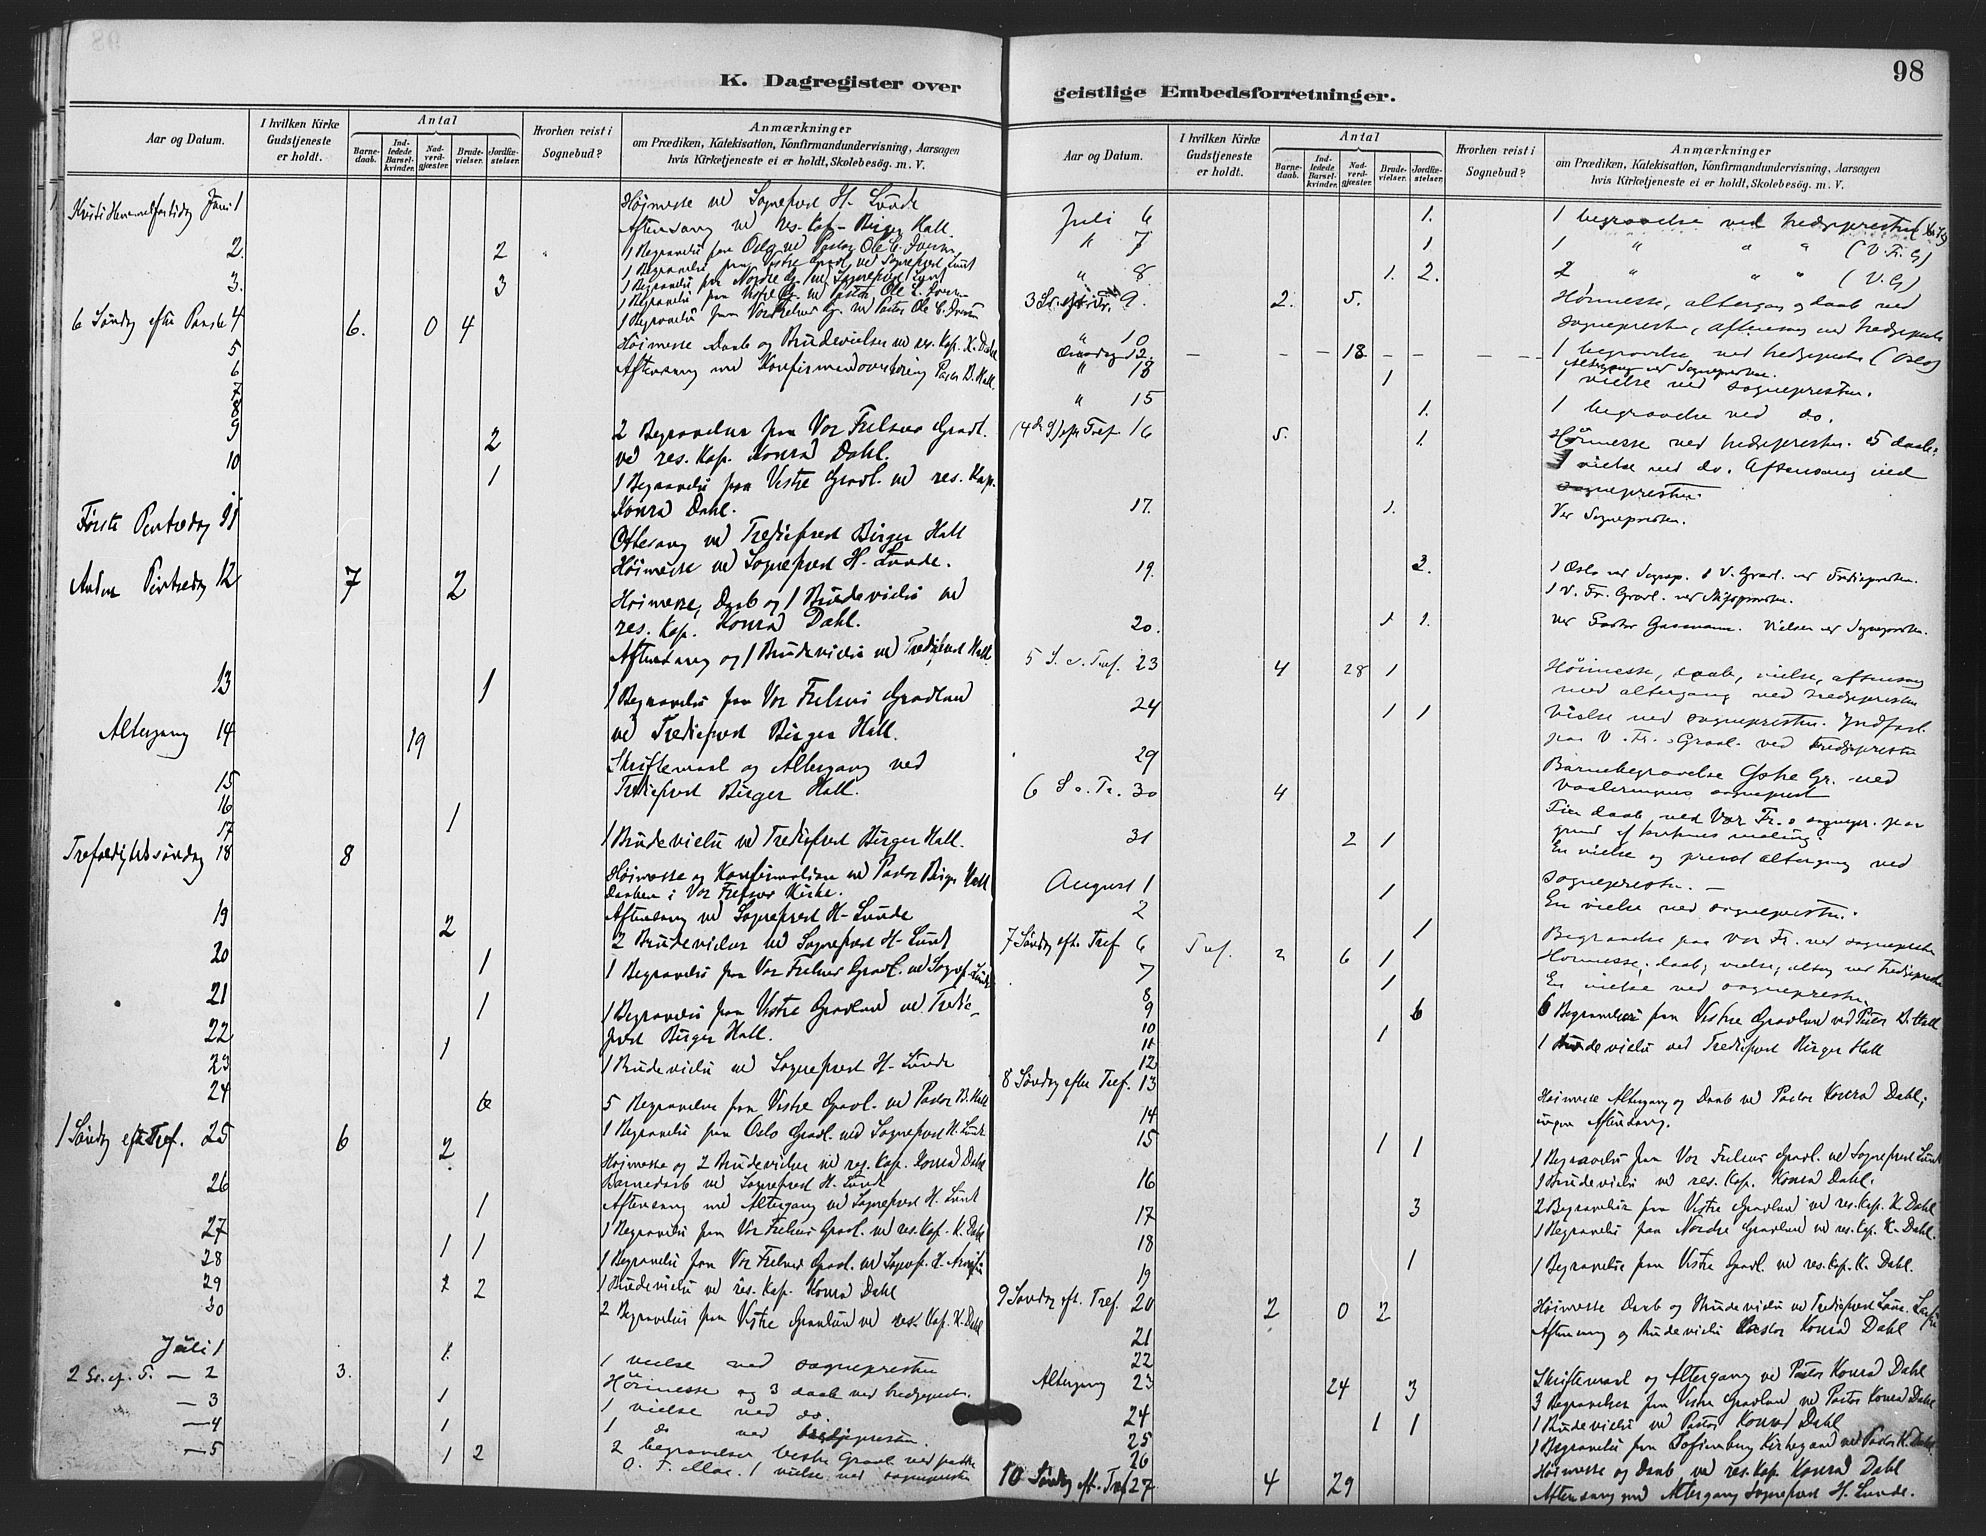 98
K. Dagregister over
geistlige Embedsforretninger.
Aar og Datum.
I hvilken Kirke Gudstjeneste er holdt.
Antal
Barnedaab.
Indledede Barselkvinder.
Nadverdgjæster.
Brudevielser.
Jordfæstelser.
Hvorhen reist i Sognebud?
Anmærkninger
om Prædiken, Katekisation, Konfirmandundervisning, Aarsagen
hvis Kirketjeneste ei er holdt, Skolebesög. m. V.
Kristi Himmelfartsdag Juni 1 Höimesse ved Sogneprest H. Lunde
Aftensang ved res. Kap. Birger Hall.
2. 2 1 Begravelse fra Oslo ved Pastor Ole C. Iversen
1 Begravelse fra Vestre Gravl. ved Sogneprest Lunde
3. 3 1 Begravelse fra Nordre G. ved Sogneprest Lunde
1 Begravelse fra Vestre G. ved Pastor Ole C. Iversen
1 Begravelse fra Vor Frelsers G. ved Pastor Ole C. Iversen
6 Söndag efter Paaske 4 6. 0 4 Höimesse Daab og Brudevielser ved res. Kap. K. Dahl
5 Aftensang med Konfirmandoverhöring Pastor B. Hall.
6
7
8
9 2 2 Begravelser fra Vor Frelsers Gravl.
ved res. Kap. Konrad Dahl.
10 1 1 Begravelse fra Vestre Gravl. ved res. Kap.
Konrad Dahl.
Förste Pintsedag 11 Ottesang ved Tredieprest Birger Hall
Höimesse ved Sogneprest H. Lunde.
Anden Pintsedag 12 7 2 Höimesse, Daab og 1 Brudevielse ved
res. Kap. Konrad Dahl.
Aftensang og 1 Brudevielse ved Trediprest Hall
13 1 1 Begravelse fra Vor Frelsers Gravlund
ved Trediprest Birger Hall.
Altergang 14 19 Skriftemaal og Altergang ved
Trediprest Birger Hall.
15
16 1 1 Brudevielse ved Trediprest Birger Hall.
17
Trefoldighedssöndag 18 8 Höimesse og Konfirmation ved Pastor Birger Hall
Daaben i Vor Frelsers Kirke.
Aftensang ved Sogneprest H. Lunde
19 2 2 Brudevielser ved Sogneprest H. Lunde
20 1 1 Begravelse fra Vor Frelsers Gravl. ved Sognep. Lunde
21 1 1 Begravelse fra Vestre Gravlund ved Tredie-
prest Birger Hall.
22 1 1 Brudevielse ved Sogneprest H. Lunde
23
24 6 5 Begravelser fra Vestre Gravl. ved Pastor B. Hall
1 Begravelse fra Oslo Gravl. ved Sogneprest H. Lunde
1 Söndag efter Tref. 25 6 2. Höimesse og 2 Brudevielser ved res. Kap. Konrad Dahl
Barnedaab ved Sogneprest H. Lunde
Aftensang med Altergang ved Sogneprest H. Lunde
26 1 1 Begravelse fra Vor Frelsers Gravl. ved res. Kap. K. Dahl
27 1 1 1 Begravelse fra Vor Frelsers Gravl. ved Sognep. H.
28 1 Brudevielse ved res. Kap. Konrad Dahl
29 2 2 2 Begravelser fra Vestre Gravlund ved res. Kap. K. Dahl
30
Juli 1 1. 1 vielse ved sognepresten
2 S. e. T. — 2 3. Höimesse og 3 daab ved tredieprest.
— 3 1 1 vielse ved do.
— 4 1 1 do ved tredjepresten.
— 5 1 2 2 begravelser Vestre Gravl. ved
O. F. Moe. 1 vielse ved sognepresten
Juli 6 1. 1 begravelse ved tredjepresten
" 7 1 1 " " " (V. Fr. G)
" 8. 1. 2. 2 " " " (V. G)
9. 2. 5. Höimesse, altergang og daab ved
sognepresten, aftensang ved tredjepresten
" 10 1 begravelse ved tredjepresten (Oslo)
Onsdag 12. 18. Altergang ved Sognepresten.
" 13 1 1 vielse ved sognepresten.
" 15 1. 1 begravelse ved do.
(4de S) efter Tref. 16 5. 1. Höimesse ved tredjepresten. 5 daab.
1 vielse ved do. Aftensang ved
sognepresten.
17. 1. Ved Sognepresten.
19. 3. 1 Oslo ved Sognep. 1 V. Gravl. ved Trediepresten.
1 V. Fr. Gravl. ved
20. 1 1. Ved Pastor Gasmann. Vielsen ved Sognepresten.
5 S. e. Tref. 23 4 28 1 Höimesse, daab, vielse, aftensang
med altergang ved tredjepresten
24 1 1 Vielse ved sognepresten. Jordfæst.
paa V. Fr. Gravl. ved tredjepresten
29 Barnebegravelse Östre Gr. ved
Vaalerengens sogneprest
6 S. e. Tr. 30 4 Fire daab ved Vor Fr. sognepr. paa
grund af kirkens maling.
31 2 1 En vielse og privat altergang ved
sognepresten. —
August 1 1 En vielse ved sognepresten.
2 1 Begravelse paa Vor Fr. ved sognepresten
7 Söndag efter Tref. 6 Tref. 2 6 1 Höimesse, daab, vielse, altg. ved tredjepresten
7 1 En vielse ved sognepresten
8
9 6 6 Begravelser fra Vestre Gravlund ved Pastor B. Hall
10 1 1 Brudevielse ved Trediprest Birger Hall
11
12
8 Söndag efter Tref. 13 Höimesse Altergang og Daab ved Pastor Konrad Dahl;
ingen Aftensang.
14
15 1 1 1 Begravelse fra Vor Frelsers Gravl. ved Sogneprest Lunde
1 Brudevielse ved res. Kap. Konrad Dahl.
16
17 3 2 Begravelser fra Vestre Gravlund ved res. Kap. K. Dahl
1 Begravelse fra Nordre Gravlund ved res. Kap. K. Dahl.
18 1 1 Begravelse fra Vestre Gravl. ved res. Kap. K. Dahl.
19
9 Söndag eft. Tref. 20 2 0 2 Höimesse Daab og Brudevielse ved Trediprest
Aftensang og Brudevielse Pastor Konrad Dahl
21
22
Altergang 23 24 3 Skriftemaal og Altergang ved Pastor Konrad Dahl
3 Begravelser fra Vestre Gravlund ved Pastor Konrad Dahl
24 1 1 1 Brudevielse ved Pastor Konrad Dahl
25 1 Begravelse fra Sofienberg Kirkegaard ved Pastor K. Dahl
26
10 Söndag eft. Tref 27 4 29 Höimesse og Daab ved res. Kap. Konrad Dahl
Aftensang med Altergang Sogneprest H. Lunde.